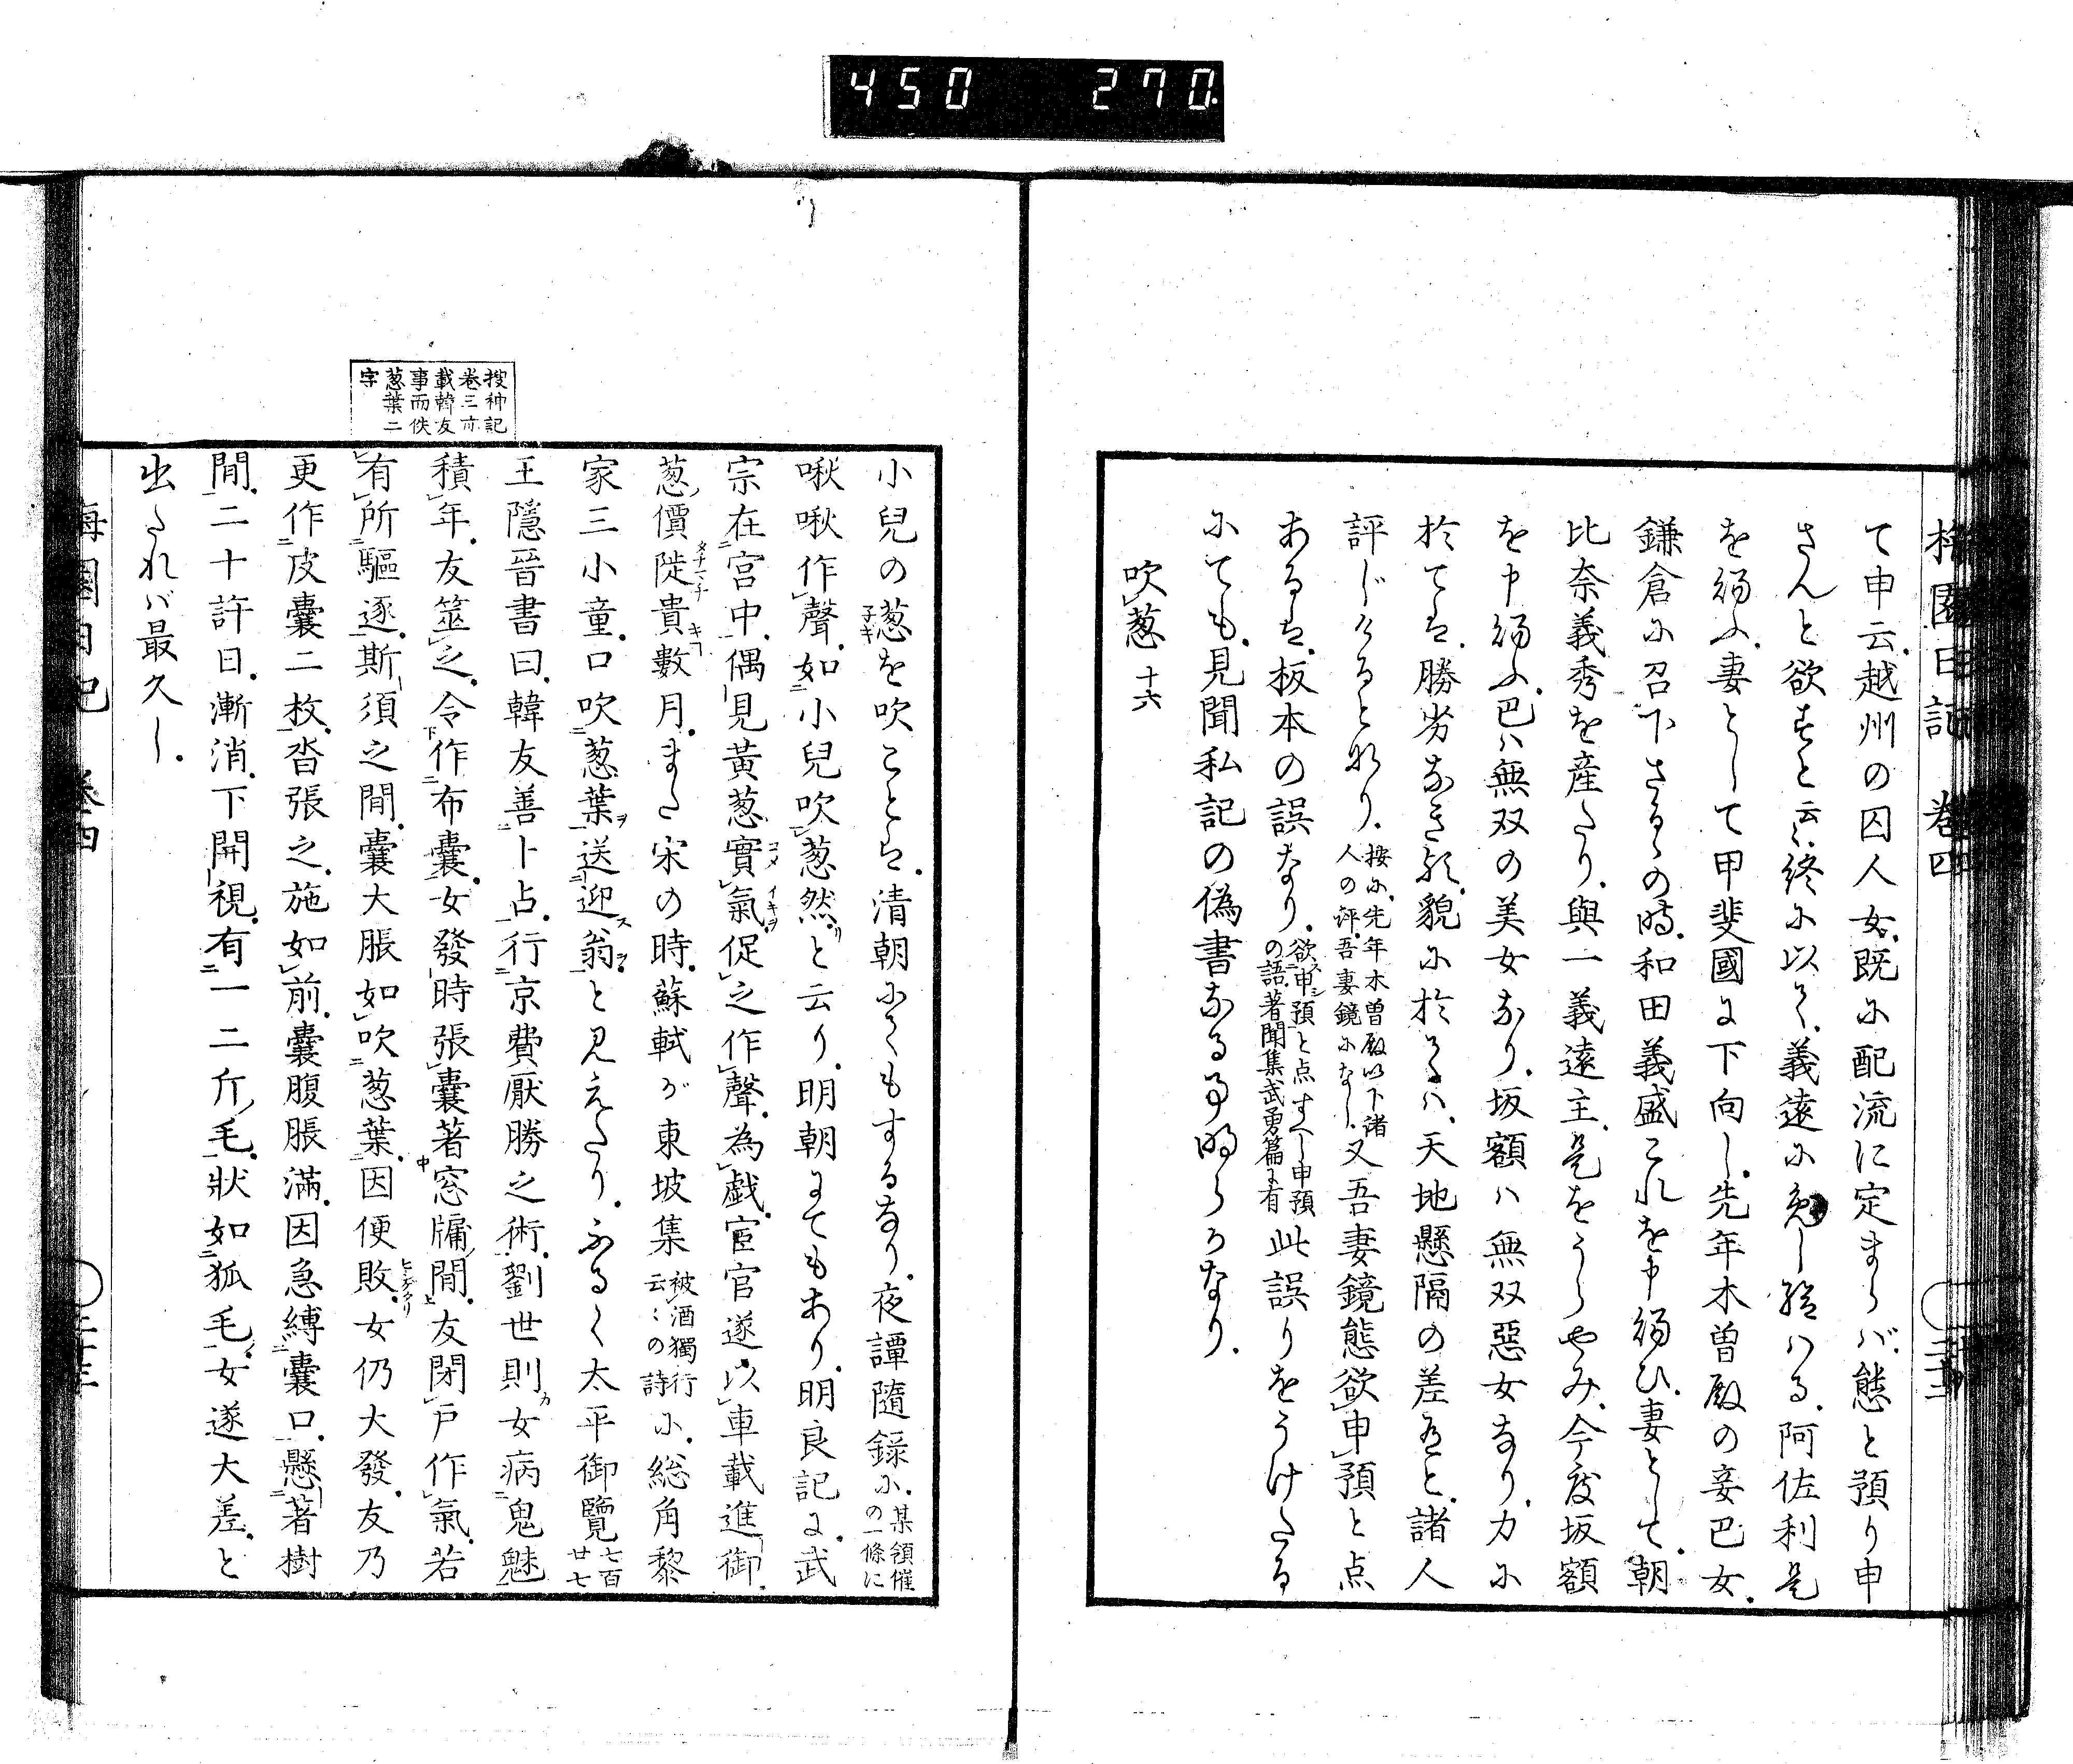 450 270
梅園日記 卷四
て申云。越州の囚人女。既に配流に定まらバ。態と預り申
さんと欲すと云々。終に以て。義遠に免し給ハる。阿佐利是
を得ふ。妻として甲斐國に下向し。先年木曾殿の妾巴女。
鎌倉に召下さるゝの時。和田義盛これを申得ひ。妻として。朝
比奈義秀を産たり。與一義遠主。是をうらやみ。今度坂額
を申得ふ。巴ハ無双の美女なり。坂額ハ無双惡女なり。力に
於ては。勝劣なき歟。貌に於てハ。天地懸隔の差有と。諸人
評じけるとなり。按に。先年木曾殿以下諸人の評。吾妻鏡になし。又吾妻鏡態欲申預と点
あるは。板本の誤なり。欲申預と点すべし申預の語。著聞集武勇篇に有此誤りをうけたる
にても。見聞私記の偽書なる事明らかなり。
吹葱 十六
小兒の葱を吹ことは。清朝にてもするなり。夜譚隨録に。某領催の一條に
啾啾作聲。如小兒吹葱然。と云り。明朝にてもあり。明良記に。武
宗在宮中。偶見黄葱實氣。促之作聲。為戯。宦官遂以車載進御。
葱價陡貴數月。また宋の時。蘇軾が東坡集 被酒獨行云々の詩に。総角黎
家三小童。口吹葱葉送迎翁。と見えたり。ふるく太平御覽 七百廿七
王隱晉書曰。韓友善卜占。行京費厭勝之術。劉世則女病鬼魅
積年。友筮之。令作布囊。女發時張囊著窓牖間。友閉戸作氣。若
有所驅逐。斯須之間。囊大脹如吹葱葉。因便敗。女仍大發。友乃
更作皮囊二枚。沓張之。施如前。囊腹脹滿。因急縛囊口。懸著樹
間。二十許日。漸消。下開視。有一二斤毛。狀如狐毛。女遂大差。と
出たれバ最久し。
搜神記
卷三亦
載韓友
事而佚
葱葉二
字
梅園日記 卷四